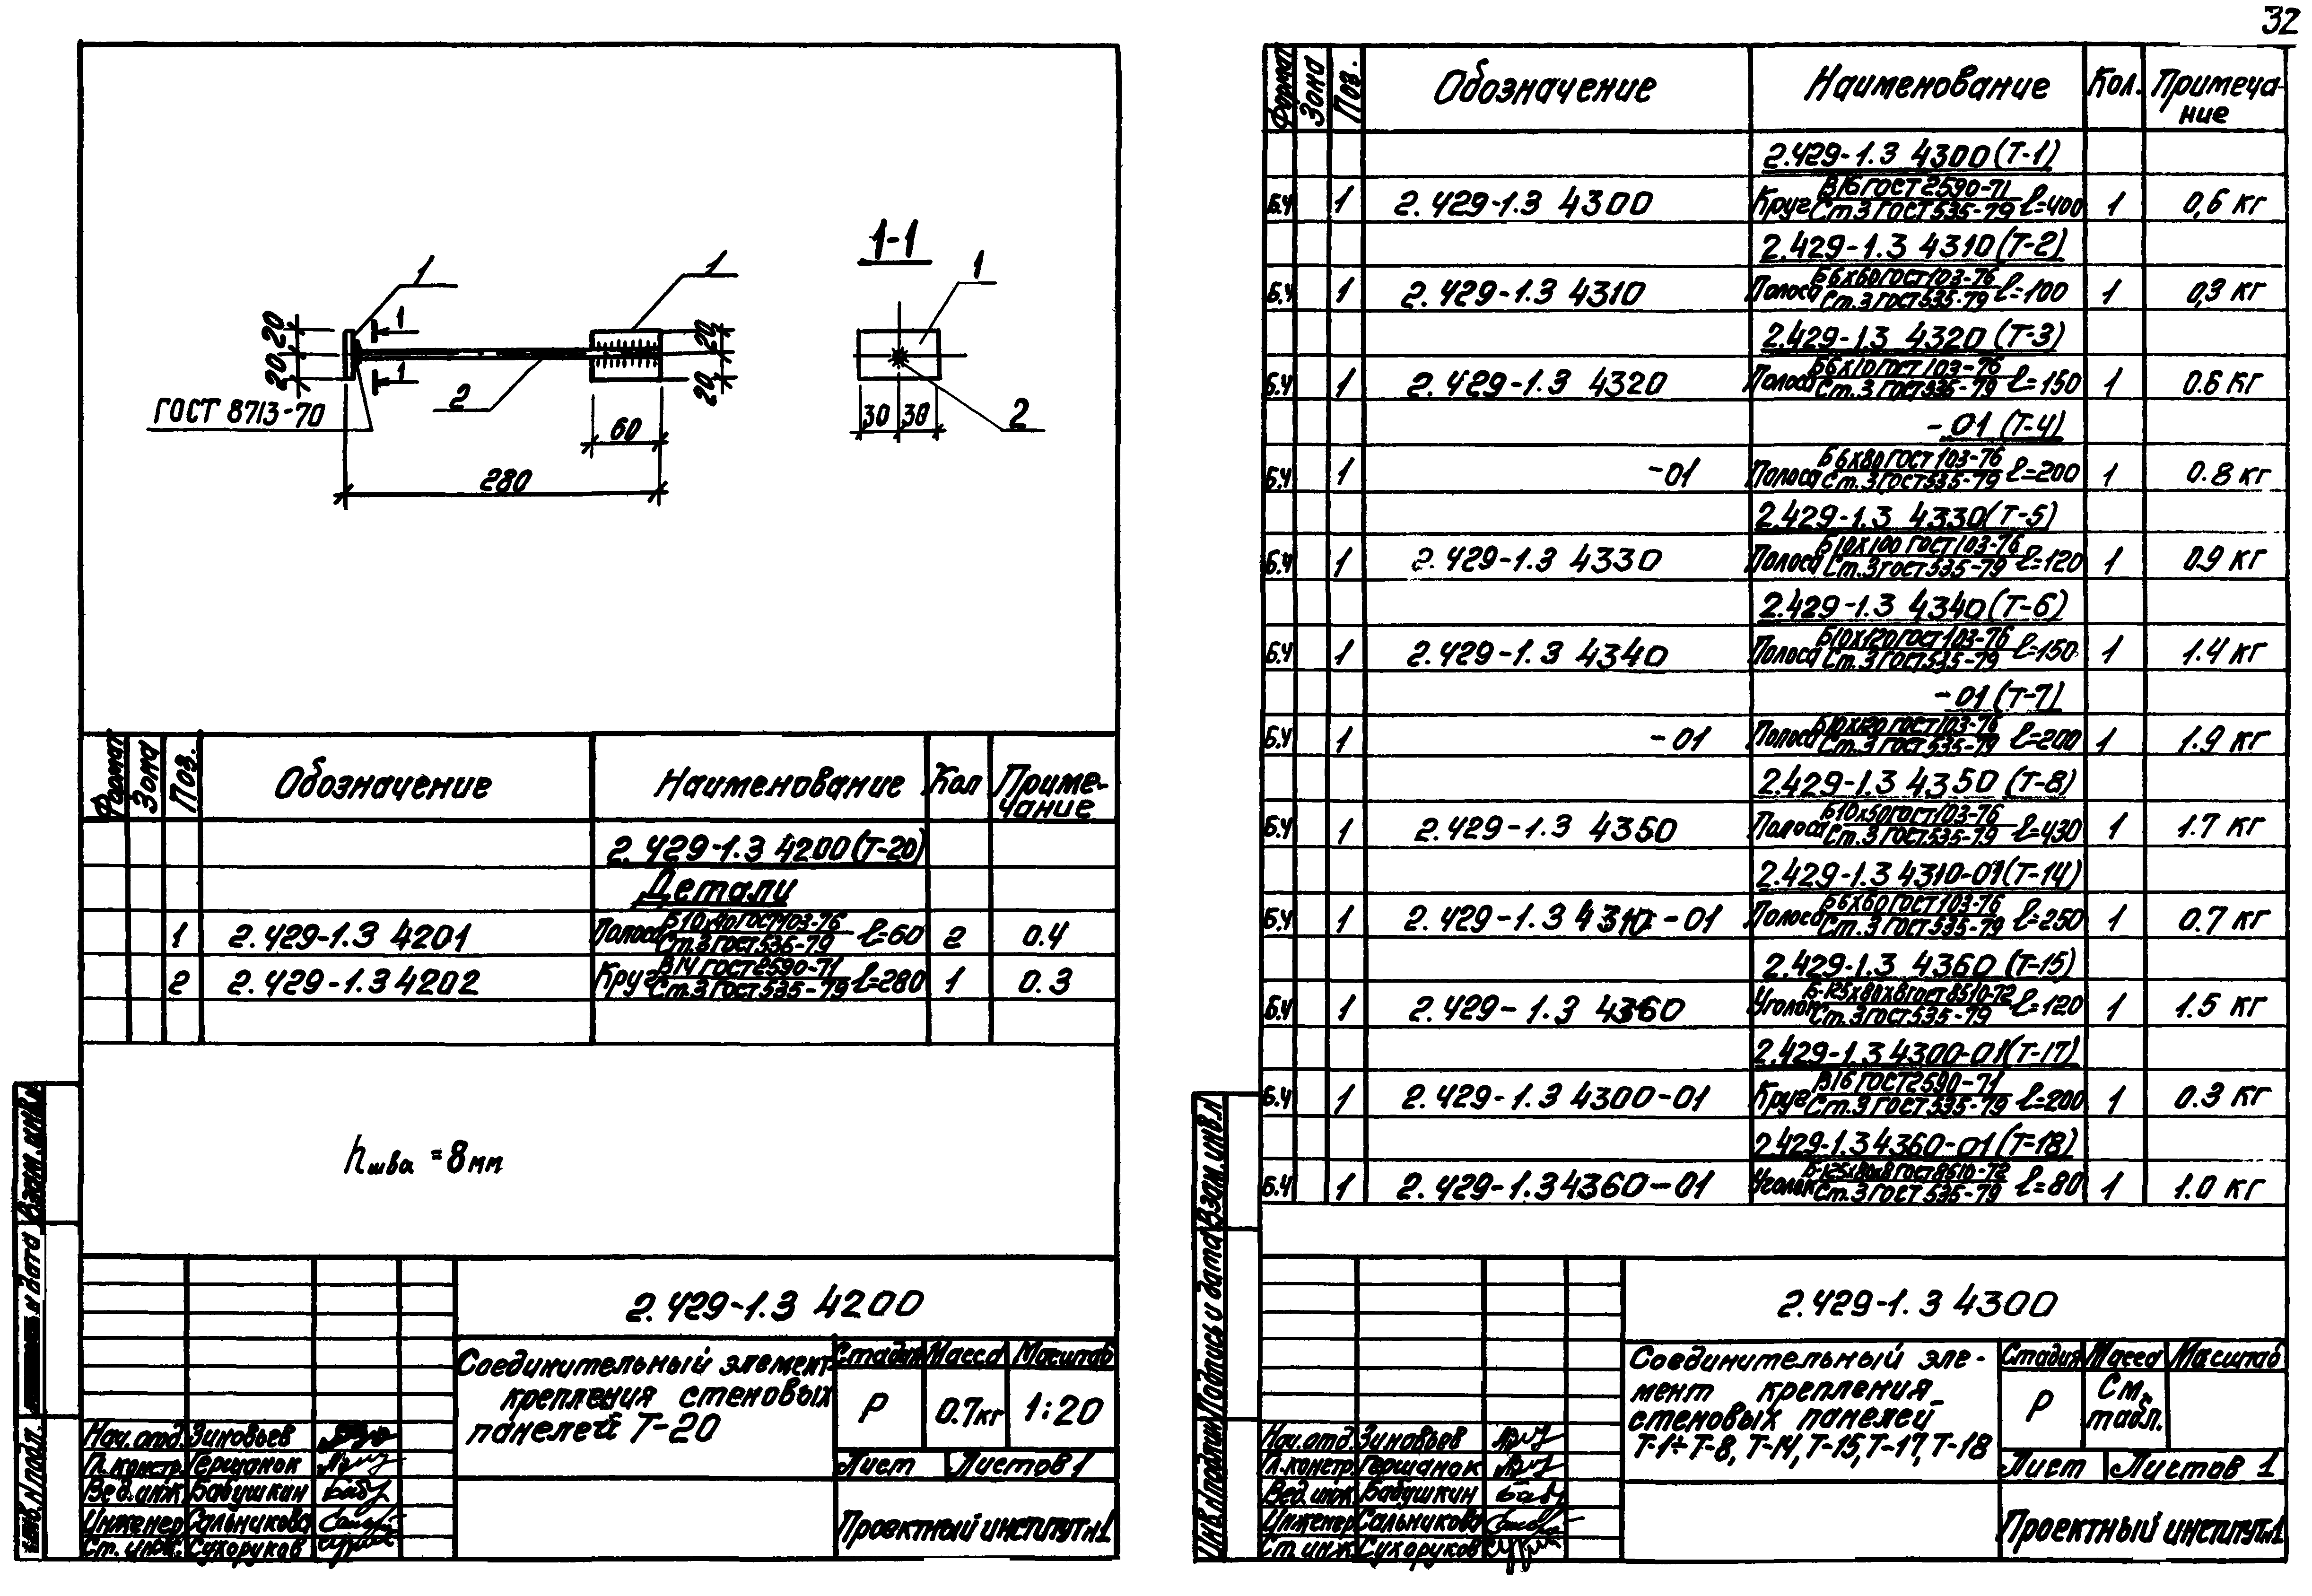 32
1-1
1
1
1
20
20
1
1
20
20
2
ГОСТ 8713-70
60
280
30 30
2
Формат Зона Поз. Обозначение Наименование Кол Приме-
чание
2.429-1.3 4200 (Т-20)
Детали
1 2.429-1.3 4201 Полоса Б10х40 ГОСТ 103-76 ℓ=60 2 0.4
Ст.3 ГОСТ 535-79
2 2.429-1.3 4202 Круг В14 ГОСТ 2590-71 ℓ=280 1 0.3
Ст.3 ГОСТ 535-79
hшва = 8мм
2.429-1.3 4200
Соединительный элемент
крепления стеновых
панелей Т-20
Стадия Масса Масштаб
Р 0.7кг 1:20
Лист Листов 1
Проектный институт №1
Нач.отд. Зиновьев
Гл.констр. Гершанок
Вед.инж. Бабушкин
Инженер Сальникова
Ст.инж. Сухоруков
Взам.инв.№
и дата
Инв.№подл.
Формат Зона Поз. Обозначение Наименование Кол. Примеча-
ние
2.429-1.3 4300 (Т-1)
Б.Ч 1 2.429-1.3 4300 Круг В16 ГОСТ 2590-71 ℓ=400 1 0,6 кг
Ст.3 ГОСТ 535-79
2.429-1.3 4310 (Т-2)
Б.Ч 1 2.429-1.3 4310 Полоса Б6х60 ГОСТ 103-76 ℓ=100 1 0,3 кг
Ст.3 ГОСТ 535-79
2.429-1.3 4320 (Т-3)
Б.Ч 1 2.429-1.3 4320 Полоса Б6х10 ГОСТ 103-76 ℓ=150 1 0.6 кг
Ст.3 ГОСТ 535-79
-01 (Т-4)
Б.Ч 1 -01 Полоса Б6х80 ГОСТ 103-76 ℓ=200 1 0.8 кг
Ст.3 ГОСТ 535-79
2.429-1.3 4330 (Т-5)
Б.Ч 1 2.429-1.3 4330 Полоса Б10х100 ГОСТ 103-76 ℓ=120 1 0.9 кг
Ст.3 ГОСТ 535-79
2.429-1.3 4340 (Т-6)
Б.Ч 1 2.429-1.3 4340 Полоса Б10х120 ГОСТ 103-76 ℓ=150 1 1.4 кг
Ст.3 ГОСТ 535-79
-01 (Т-7)
Б.Ч 1 -01 Полоса Б10х120 ГОСТ 103-76 ℓ=200 1 1.9 кг
Ст.3 ГОСТ 535-79
2.429-1.3 4350 (Т-8)
Б.Ч 1 2.429-1.3 4350 Полоса Б10х50 ГОСТ 103-76 ℓ=430 1 1.7 кг
Ст.3 ГОСТ 535-79
2.429-1.3 4310-01 (Т-14)
Б.Ч 1 2.429-1.3 4310-01 Полоса Б6х60 ГОСТ 103-76 ℓ=250 1 0.7 кг
Ст.3 ГОСТ 535-79
2.429-1.3 4360 (Т-15)
Б.Ч 1 2.429-1.3 4360 Уголок Б-125х80х8 ГОСТ 8510-72 ℓ=120 1 1.5 кг
Ст.3 ГОСТ 535-79
2.429-1.3 4300-01 (Т-17)
Б.Ч 1 2.429-1.3 4300-01 Круг В16 ГОСТ 2590-71 ℓ=200 1 0.3 кг
Ст.3 ГОСТ 535-79
2.429-1.3 4360-01 (Т-18)
Б.Ч 1 2.429-1.3 4360-01 Уголок Б-125х80х8 ГОСТ 8510-72 ℓ=80 1 1.0 кг
Ст.3 ГОСТ 535-79
2.429-1.3 4300
Соединительный эле-
мент крепления
стеновых панелей
Т-1÷Т-8, Т-14, Т-15, Т-17, Т-18
Стадия Масса Масштаб
Р См.
табл.
Лист Листов 1
Проектный институт №1
Нач.отд. Зиновьев
Гл.констр. Гершанок
Вед.инж. Бабушкин
Инженер Сальникова
Ст.инж. Сухоруков
Взам.инв.№
Подпись и дата
Инв.№подл.